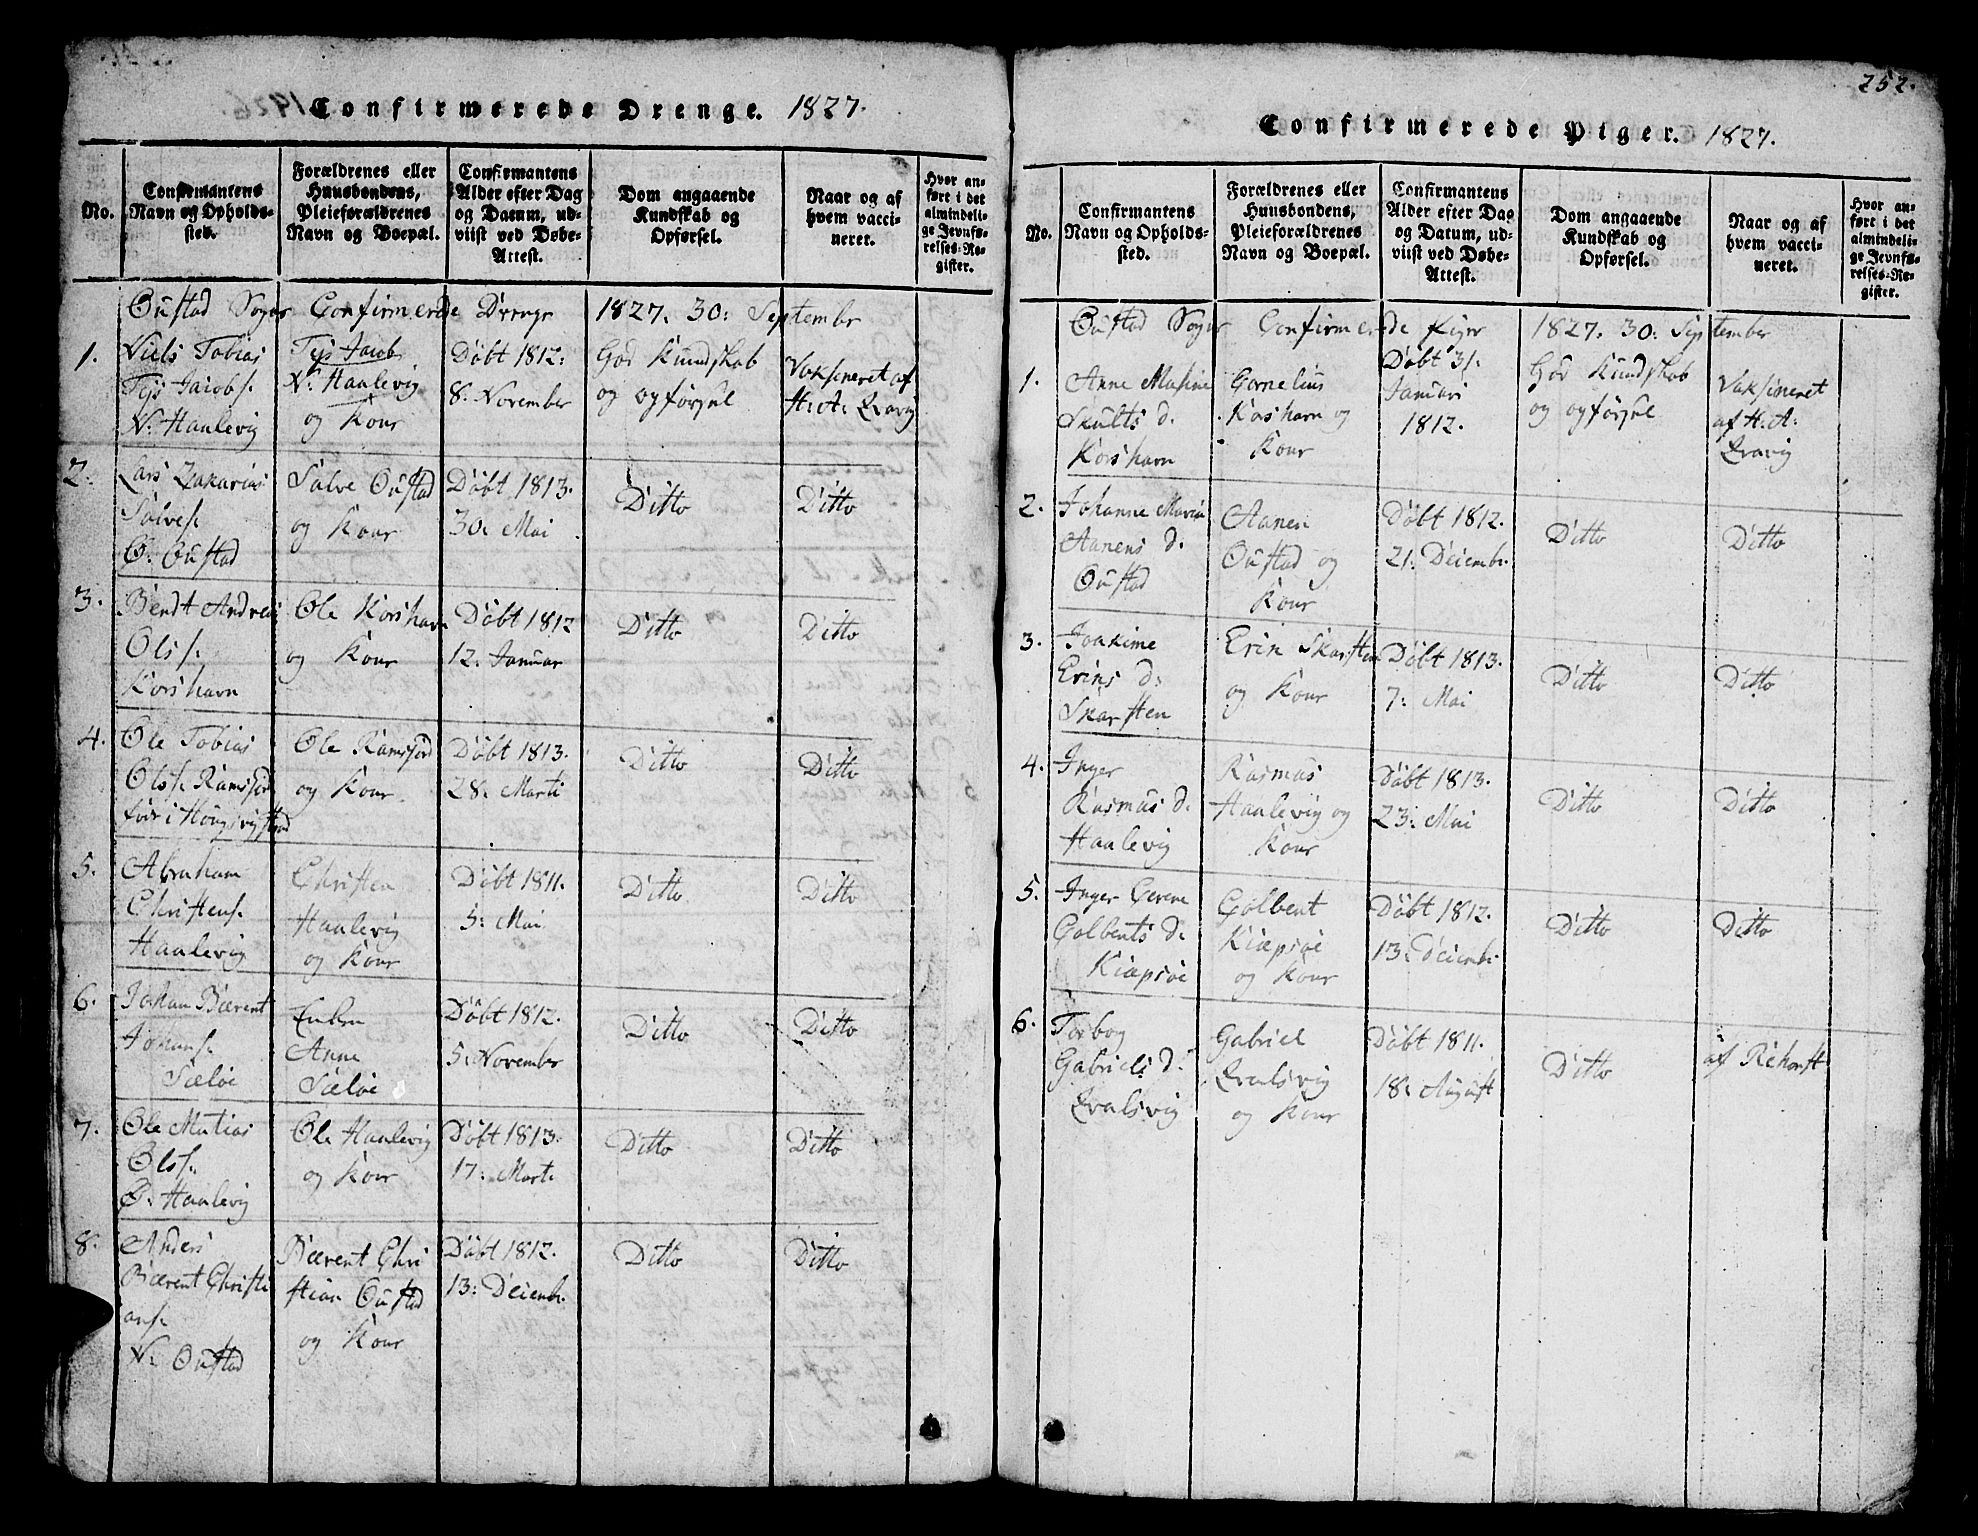 Confirmerede Drenge. 1827.
No.
Confirmantens
Navn og Opholds-
sted.
Forældrenes eller
Huusbondens,
Pleieforældrenes
Navn og Boepæl.
Confirmantens
Alder efter Dag
og Datum, ud-
viist ved Døbe-
Attest.
Dom angaaende
Kundskab og
Opførsel.
Naar og af
hvem vacci-
neret.
Hvor an-
ført i det
almindeli-
ge Jevnfø-
relses-Re-
gister.
Oustad Sogns Confirmerede Drenge 1827. 30: September
1.
Niels Tobias
Tys Jacobs.
N: Haalevig
Tys Jacob
N: Haalevig
og Kour
Døbt 1812:
8. November
God Kundskab
og opførsel
Vaksineret af
H: A:
2.
Lars Zakarias
Salves.
Ø: Oustad
Salve Oustad
og Kour
Døbt 1813.
30: Mai
Ditto
Ditto
3.
Bendt Andreas
Ols s.
Korshavn
Ole Korshavn
og Kour
Døbt 1812
12. Januar
Ditto
Ditto
4.
Ole Tobias
Ols s. Ramsfjord
Ole Ramsfjord
og Kour
Døbt 1813.
28: Marti
Ditto
Ditto
5.
Abraham
Christens.
Haalevig
Christen
Haalevig
og Kour
Døbt 1811.
5: Mai
Ditto
Ditto
6.
Johan Bærent
Johans.
Sæløe
Enken
Anne
Sæløe
Døbt 1812.
5: November
Ditto
Ditto
7.
Ole Matias
Ols s.
Ø: Haalevig
Ole Haalevig
og Kour
Døbt 1813.
17: Marti
Ditto
Ditto
8.
Anders
Bærent Christi
ans.
N: Oustad
Bærent Chri
stian Oustad
og Kour
Døbt 1812.
13: Decemb.
Ditto
Ditto
252.
Confirmerede Piger. 1827.
No.
Confirmantens
Navn og Opholds-
sted.
Forældrenes eller
Huusbondens,
Pleieforældrenes
Navn og Boepæl.
Confirmantens
Alder efter Dag
og Datum, ud-
viist ved Døbe-
Attest.
Dom angaaende
Kundskab og
Opførsel.
Naar og af
hvem vacci-
neret.
Hvor an-
ført i det
almindeli-
ge Jevnfø-
relses-Re-
gister.
Oustad Sogns Confirmerede Piger 1827. 30: September
1.
Anne Masine
Skults d.
Korshavn
Cornelius
Korshavn og
Kour
Døbt 31.
Januari
1812.
God Kundskab
og opførsel
Vaksineret
af H: A:
2.
Johanne Maria
Aanens d.
Oustad
Aanen
Oustad og
Kour
Døbt 1812.
21: Decembr.
Ditto
Ditto
3.
Joakime
Erins d:
Skarsten
Erin Skarsten
og Kour
Døbt 1813.
7: Mai
Ditto
Ditto
4.
Inger
Rasmus d.
Haalevig
Rasmus
Haalevig og
Kour
Døbt 1813.
23: Mai
Ditto
Ditto
5.
Inger Gerene
Golbents d.
Kiæpsøe
Golbent
Kiæpsøe
og Kour
Døbt 1812.
13: Decemb.
Ditto
Ditto
6.
Torbog
Gabriels d.
Gabriel
og Kour
Døbt 1811.
18: August
Ditto